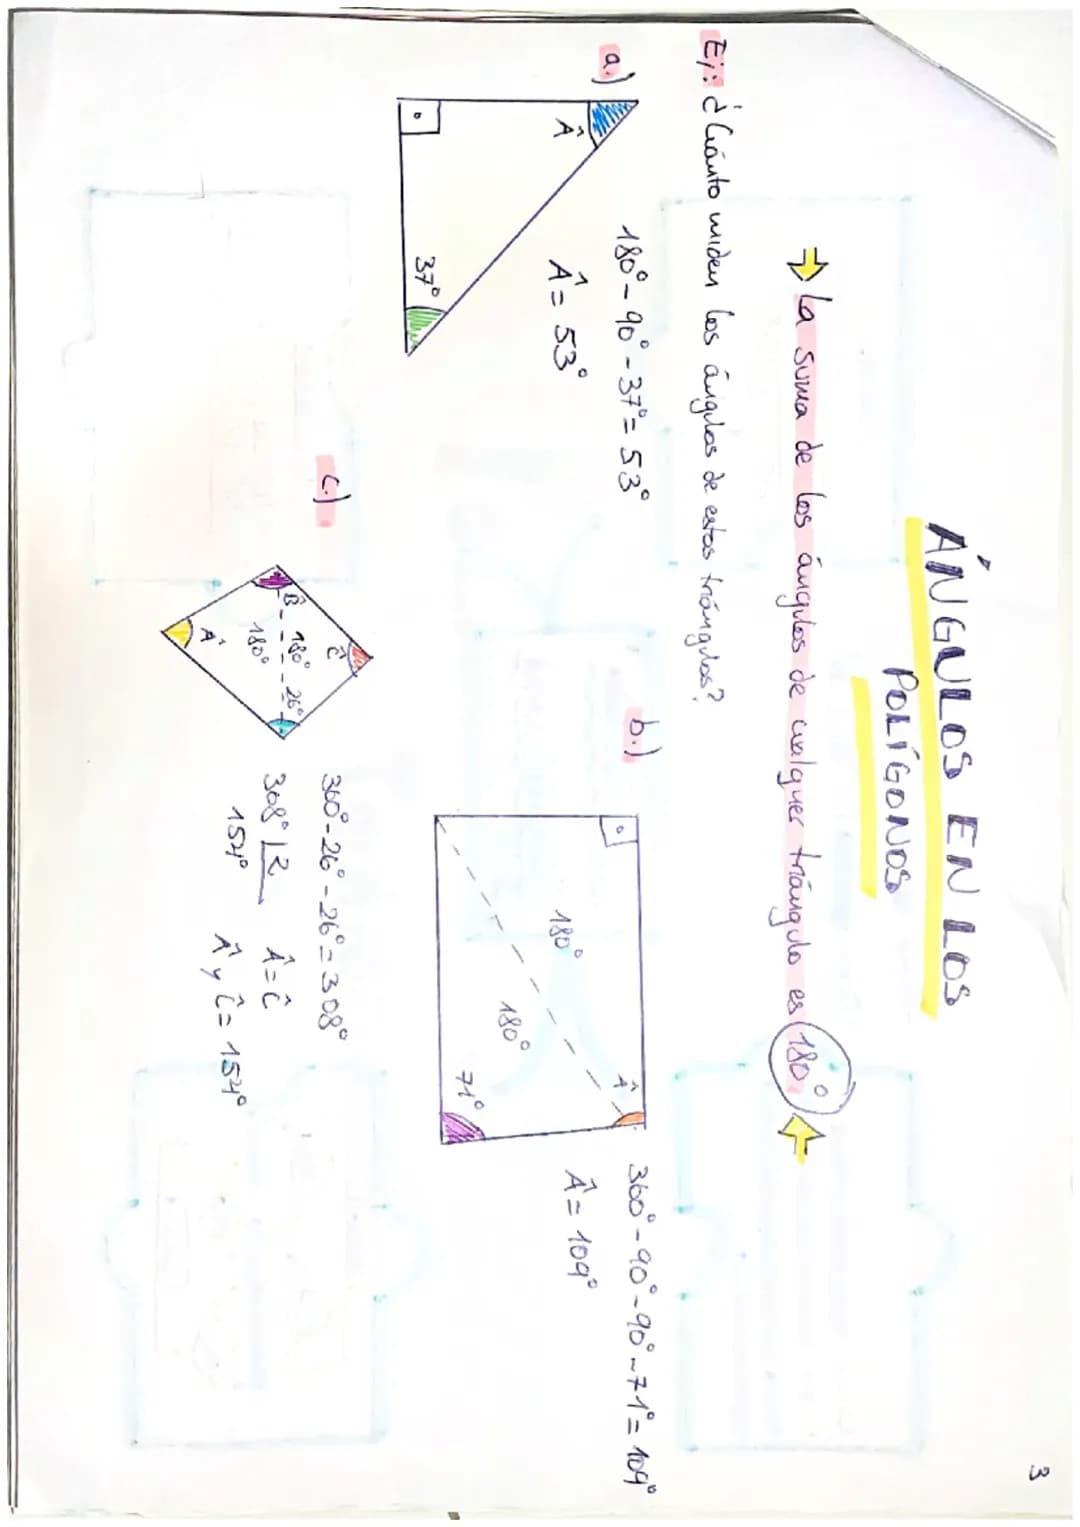 3
ÁNGULOS EN LOS
POLÍGONOS
→ La suma de los ángulos de cualquier triángulo es 180° ←
Ej: ¿Cuánto miden los ángulos de estos triángulos?
a.)
180° - 90° - 37° = 53°
Â = 53°
Â
37°
b.)
Â
180°
180°
71°
360° - 90° - 90° - 71° = 109°
Â = 109°
c.)
Ĉ
B̂
180°
26°
180°
Â
360° - 26° - 26° = 308°
308° |2
154°
Â = Ĉ
Â y Ĉ = 154°